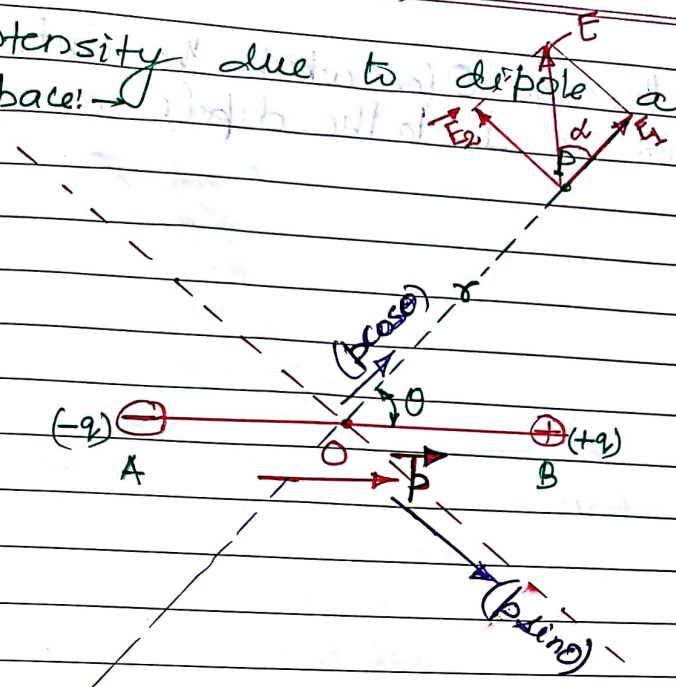 tensity due to dipole a
pace:→
E
E₂
α
E₁
P
r
(pcosθ)
θ
(-q)
(+q)
A
O
p
B
(psinθ)